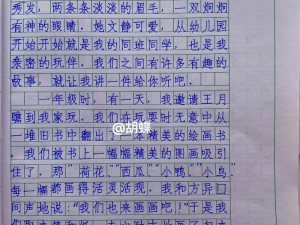 秀发，两条条淡淡的眉毛，一双炯炯
有神的眼睛。她文静可爱，从幼儿园
开始开始就是我的同班同学，也是我
亲密的玩伴。我们之间有许多有趣的
故事，就让我讲一件给你听吧。
一年级时，有一天，我邀请王月
瞳到我家玩，我们在玩耍时无意中从
一堆旧书中翻出了一本精美的绘画书
，我们被书上一幅幅精美的图画吸引
住了，那“荷花、“西瓜”“小鸭”“小鸟”
每一幅都画得活灵活现，我和方异口
同声地说：“我们也来画画吧！”于是我
@胡蝶